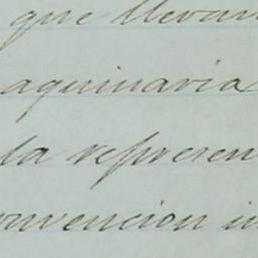 que llevan
aquinaria
la represen
onvencion in